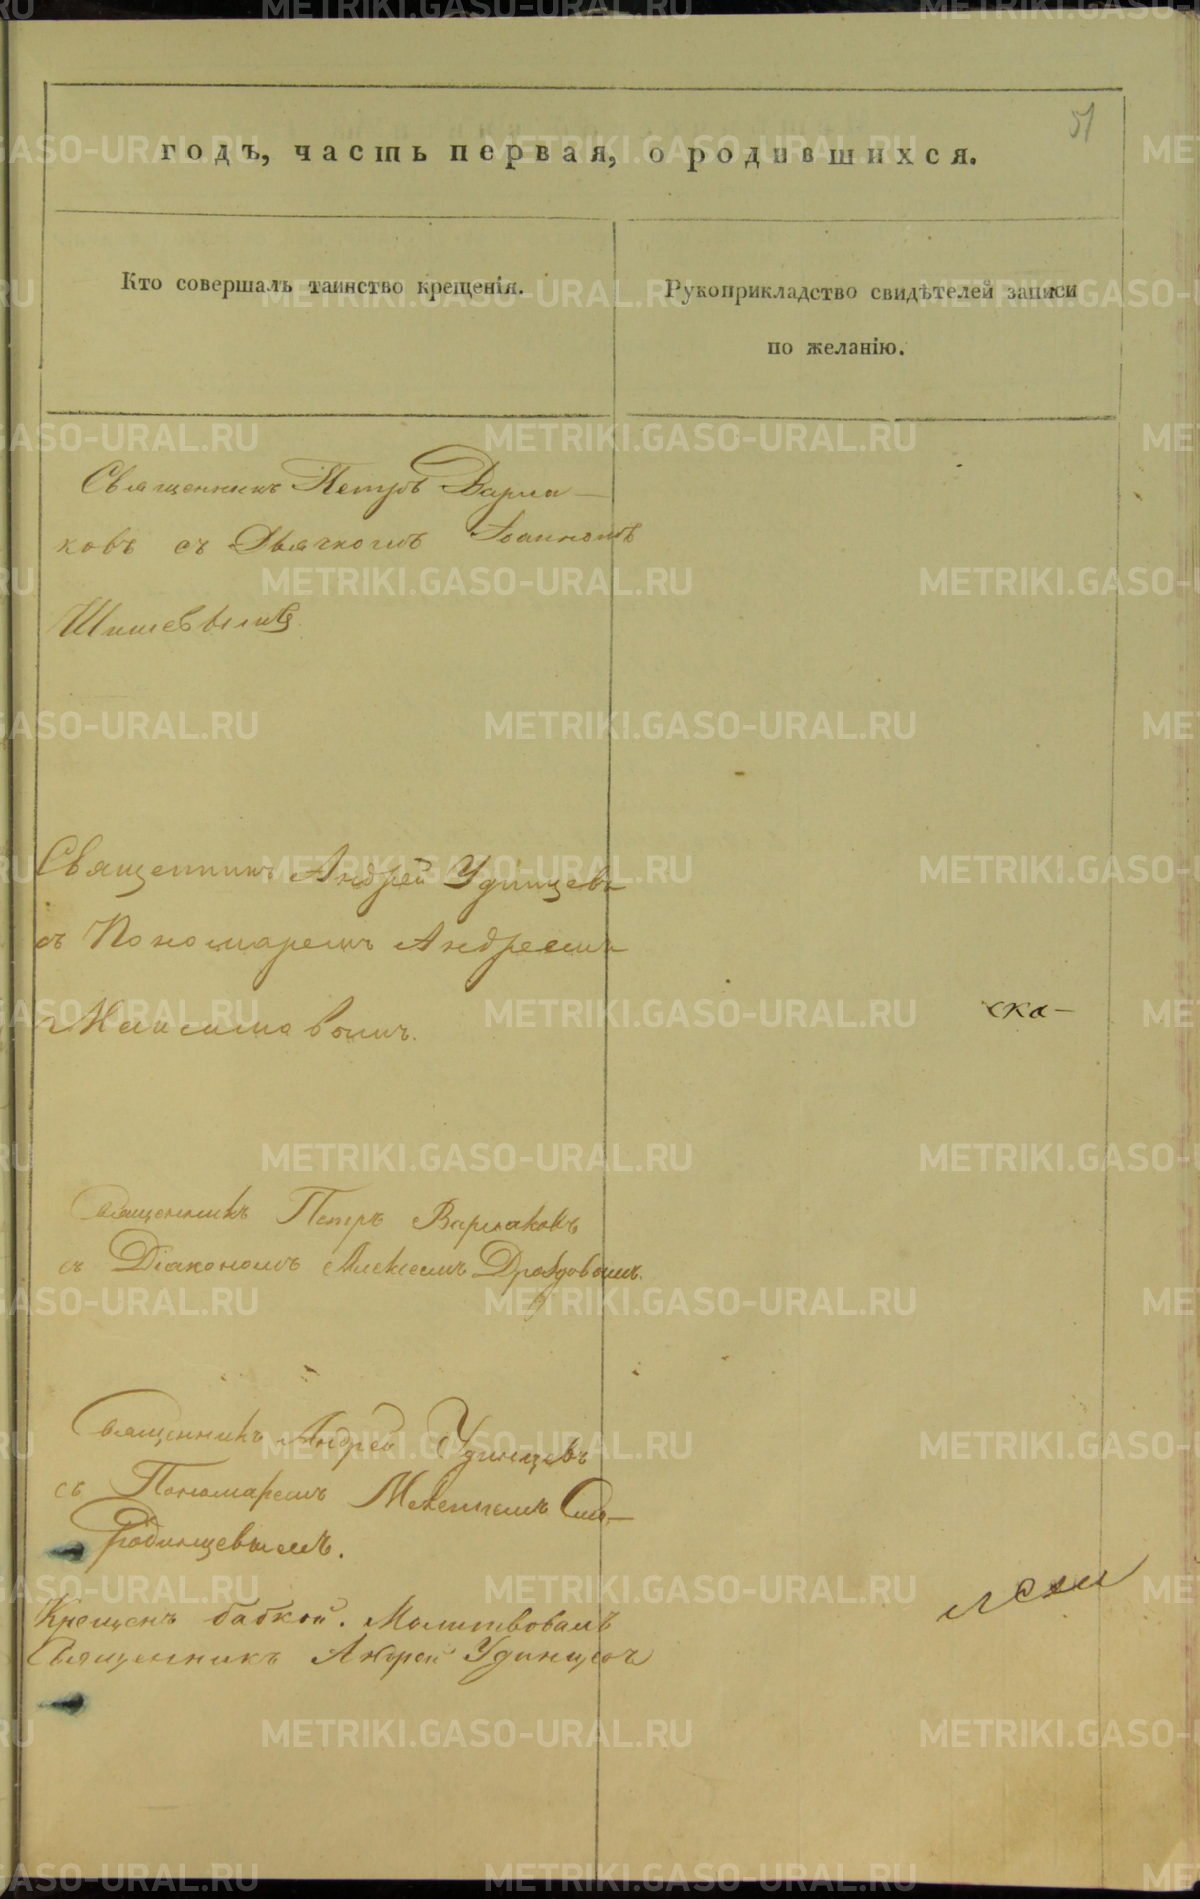 51
годъ, часть первая, о родившихся.
Кто совершалъ таинство крещенія.
Рукоприкладство свидѣтелей записи
по желанію.
Священникъ Петръ Варла-
ковъ съ Дьячкомъ Іоанномъ
Шишевымъ.
Священникъ Андрей Удинцевъ
съ Пономаремъ Андреемъ
Максимовымъ.
ска-
Священникъ Петръ Варлаковъ
съ Діакономъ Алексеемъ Дроздовымъ.
Священникъ Андрей Удинцевъ
съ Пономаремъ
Крещенъ бабкой. Молитвовалъ
Священникъ Андрей Удинцевъ
METRIKI.GASO-URAL.RU